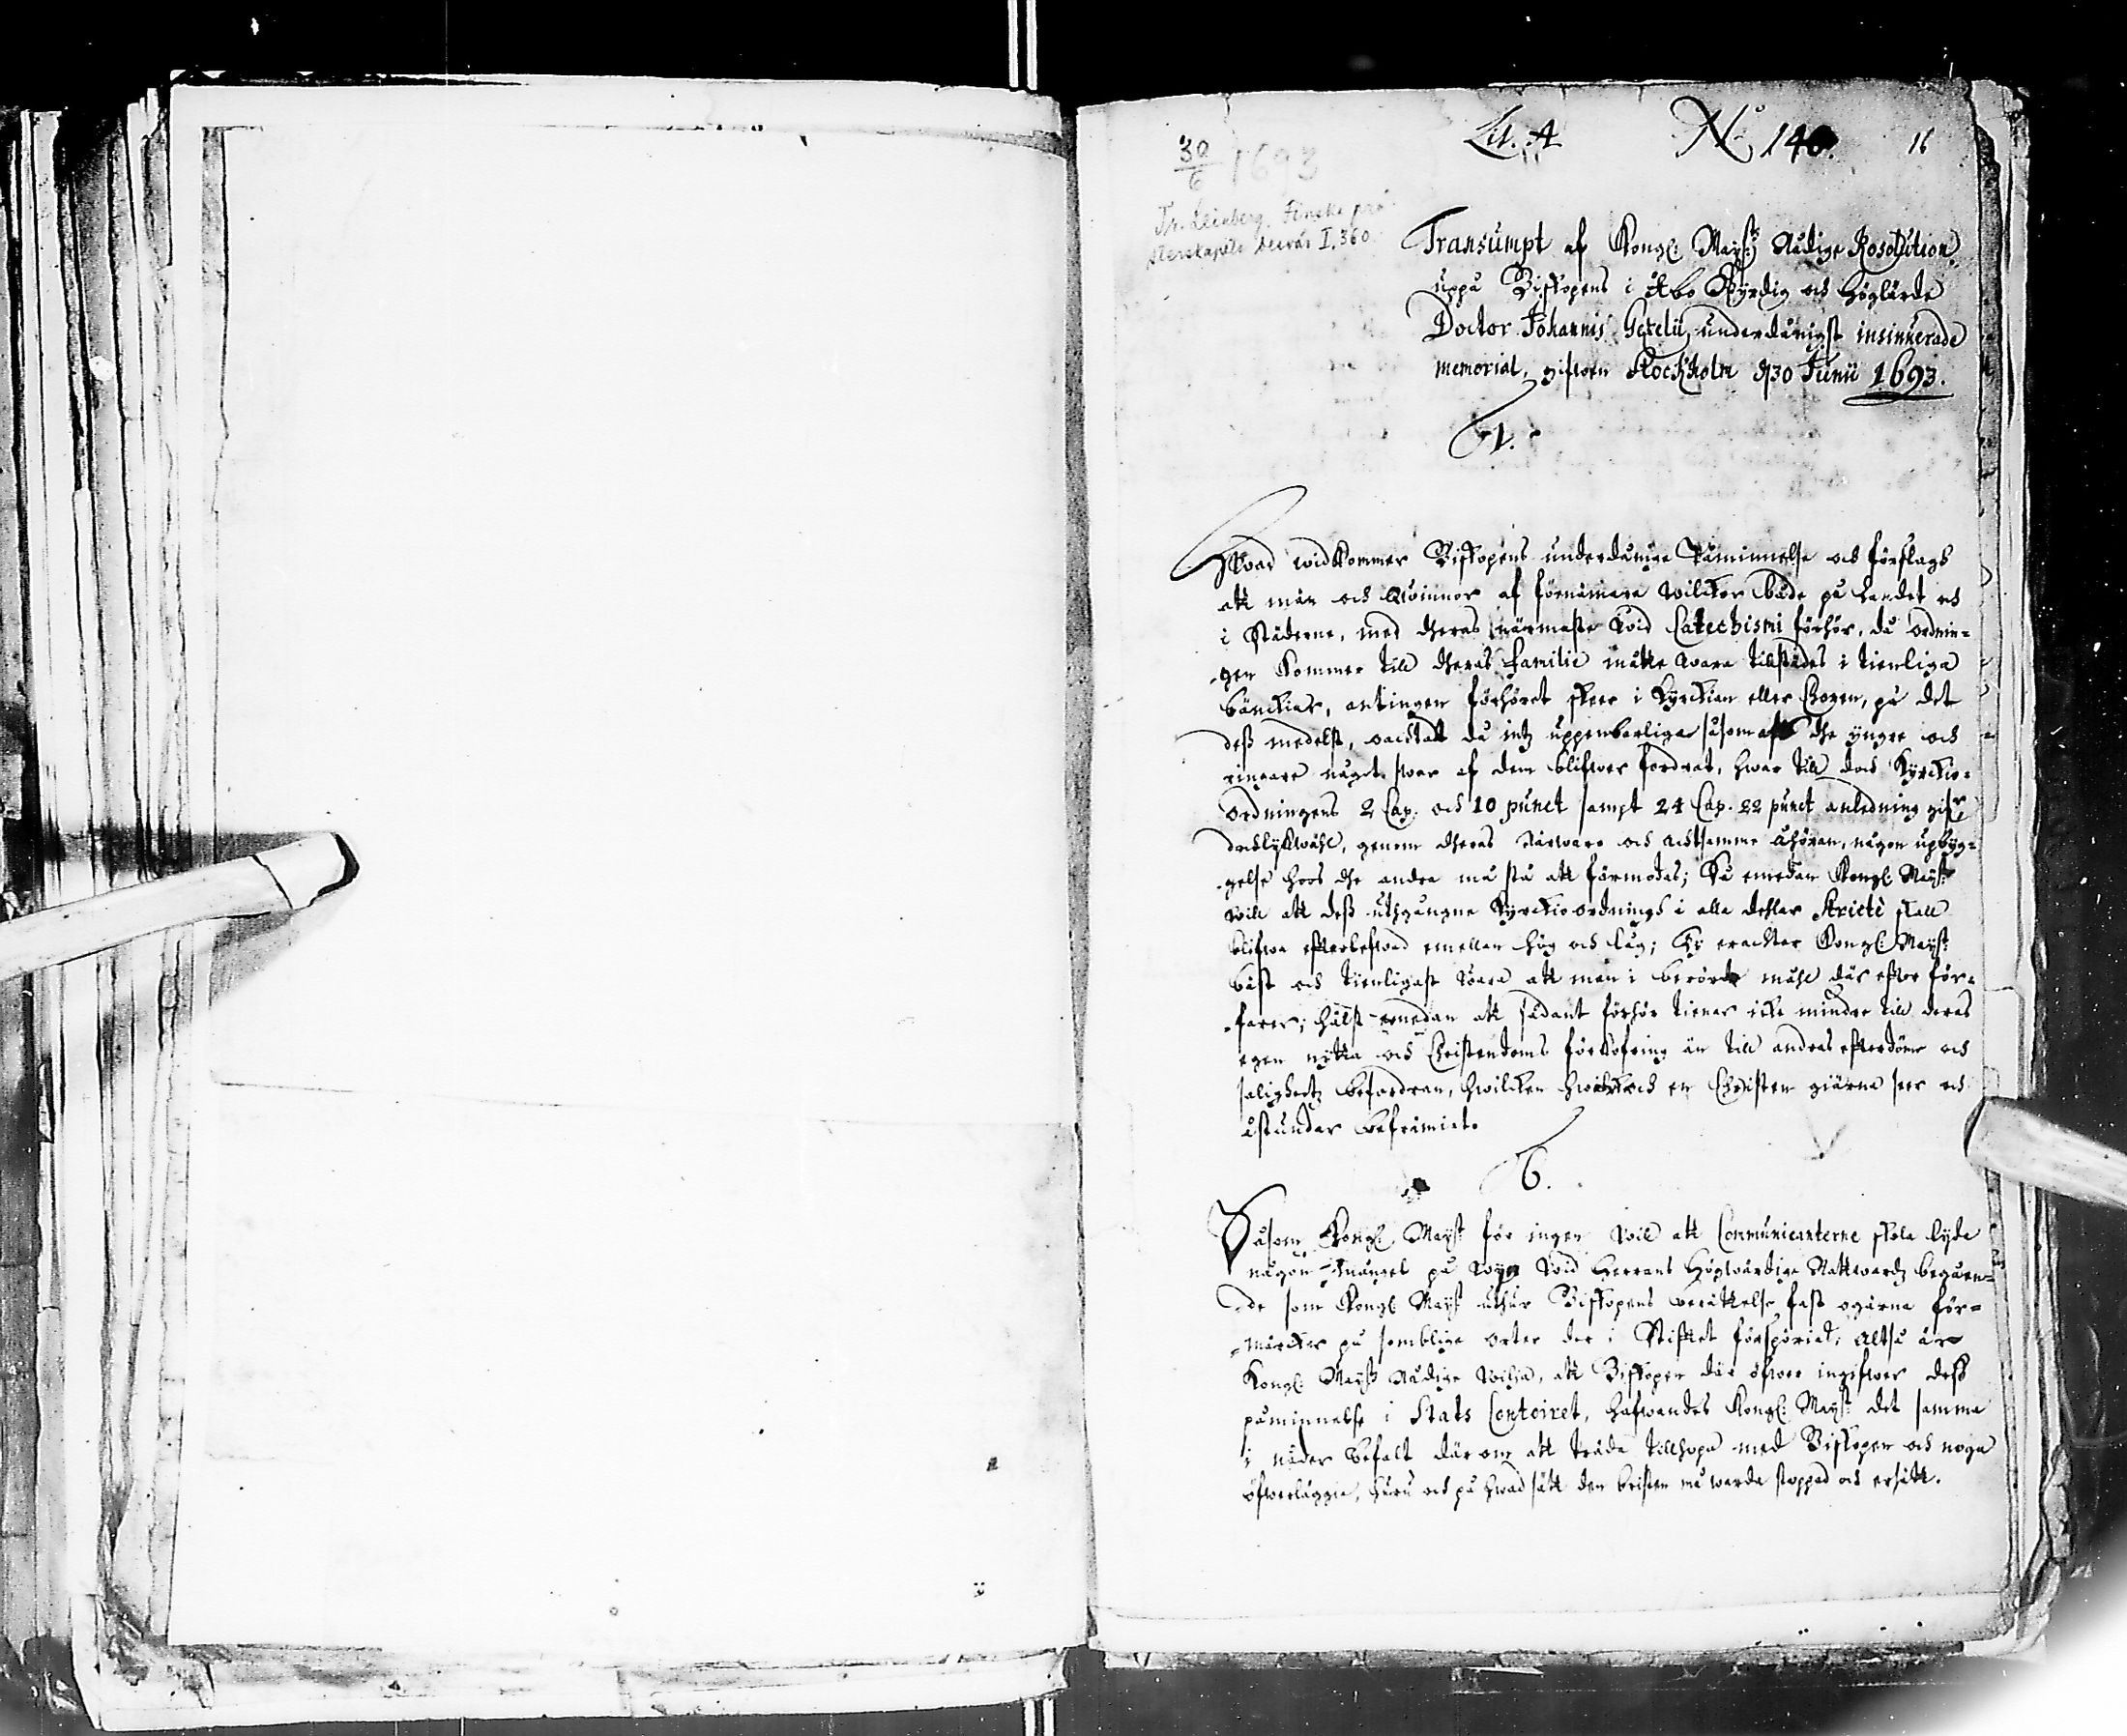 Lit. A N:o 140. 16
30/6 1693
Tr. Leinberg, Finska prä-
sterskapets besvär I, 360.
Transumpt af Kongl: Maij:ts Nådige Resolution
uppå Biskopens i Åbo Ehrwyrdig och Höglärde
Doctor Johannis Gezelii, underdånigst insinuerade
memorial, gifwen Stockholm d. 30 Junii 1693.
1.
Hwad widkommer Biskopens underdånige Påminnelse och förslagh
att män och Qwinnor af förnämare wilckor både på landet och
i Städerne, med dheras närmaste wid Catechismi förhör, då ordnin-
gen kommer till dheras familie måtte wara tillstädes i tienliga
bänckiar, antingen förhöret skeer i Kyrckian eller Choren, på det
dess medelst, oachtatt då intz uppenbarliga såsom aff dhe yngre och
ringare något swar af dem blifwer fordrat, hwar till doch Kyrckio-
Ordningens 2 Cap. och 10 punct sampt 24 Cap. 22 punct anledning gifr
dochlyckwähl, genom dheras närwaro och achtsamme åhöran, någon upbyg-
gelse hoos dhe andra må stå att förmodas; Så emedan Kongl: Maij:tt
will att dess uthgångne Kyrckio ordningh i alla dehlar Stricte skall
blifwa efterlefwad emellan hög och låg; Ty erachtar Kongl: Maij:t
bäst och tienligast wara att man i berörde måhl där efter för-
farer; hälst emedan att sådant förhör tienar icke mindre till deras
egen nytta och Christendoms förkofring än till andras efterdöme och
saligheetz befordran, hwilcken och en Christen giärna seer och
åstundar befrämiat.
6.
Såsom Kongl: Maij:t för ingen will att Communicanterne skola lyda
någon mangel på wijn wid Herrans Högwärdige Nattwardz begåen-
de som Kongl: Maij:t uthur Biskopens berättelse fast ogärna för-
märcker på somblige orter der i Stifftet försporiat; Altså är
Kongl: Maij:tz Nådige wilja, att Biskopen där öfwer ingifwer dess
påminnelse i Stats Contoiret, hafwandes Kongl: Maij:t det samma
i nåder befalt där om att träda tillhopa med Biskopen och noga
öfwerläggia, huru och på hwad sätt den bristen må warda stoppad och ersätt.